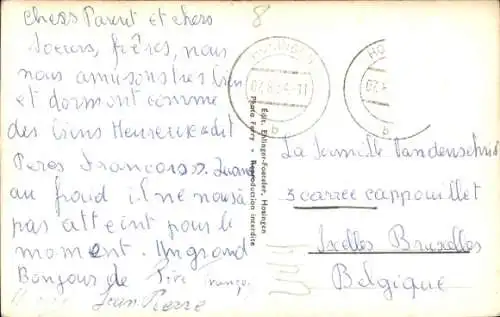 Chers Parent et chers
soeurs, frères, nous
nous amusons tres bien
et dormont comme
des biens Heureux a dit
Peres Francois. Quand
au froid il ne nous a
pas atteint pour le
moment. Un grand
Bonjour de
Jean Pierre
8
HOSINGEN
b
HO
b
Edit. Ehlinger-Foerster, Hosingen
Photo Ferry - Reproduction interdite
La famille
3 carree cappouillet
Ixelles Bruxelles
Belgique